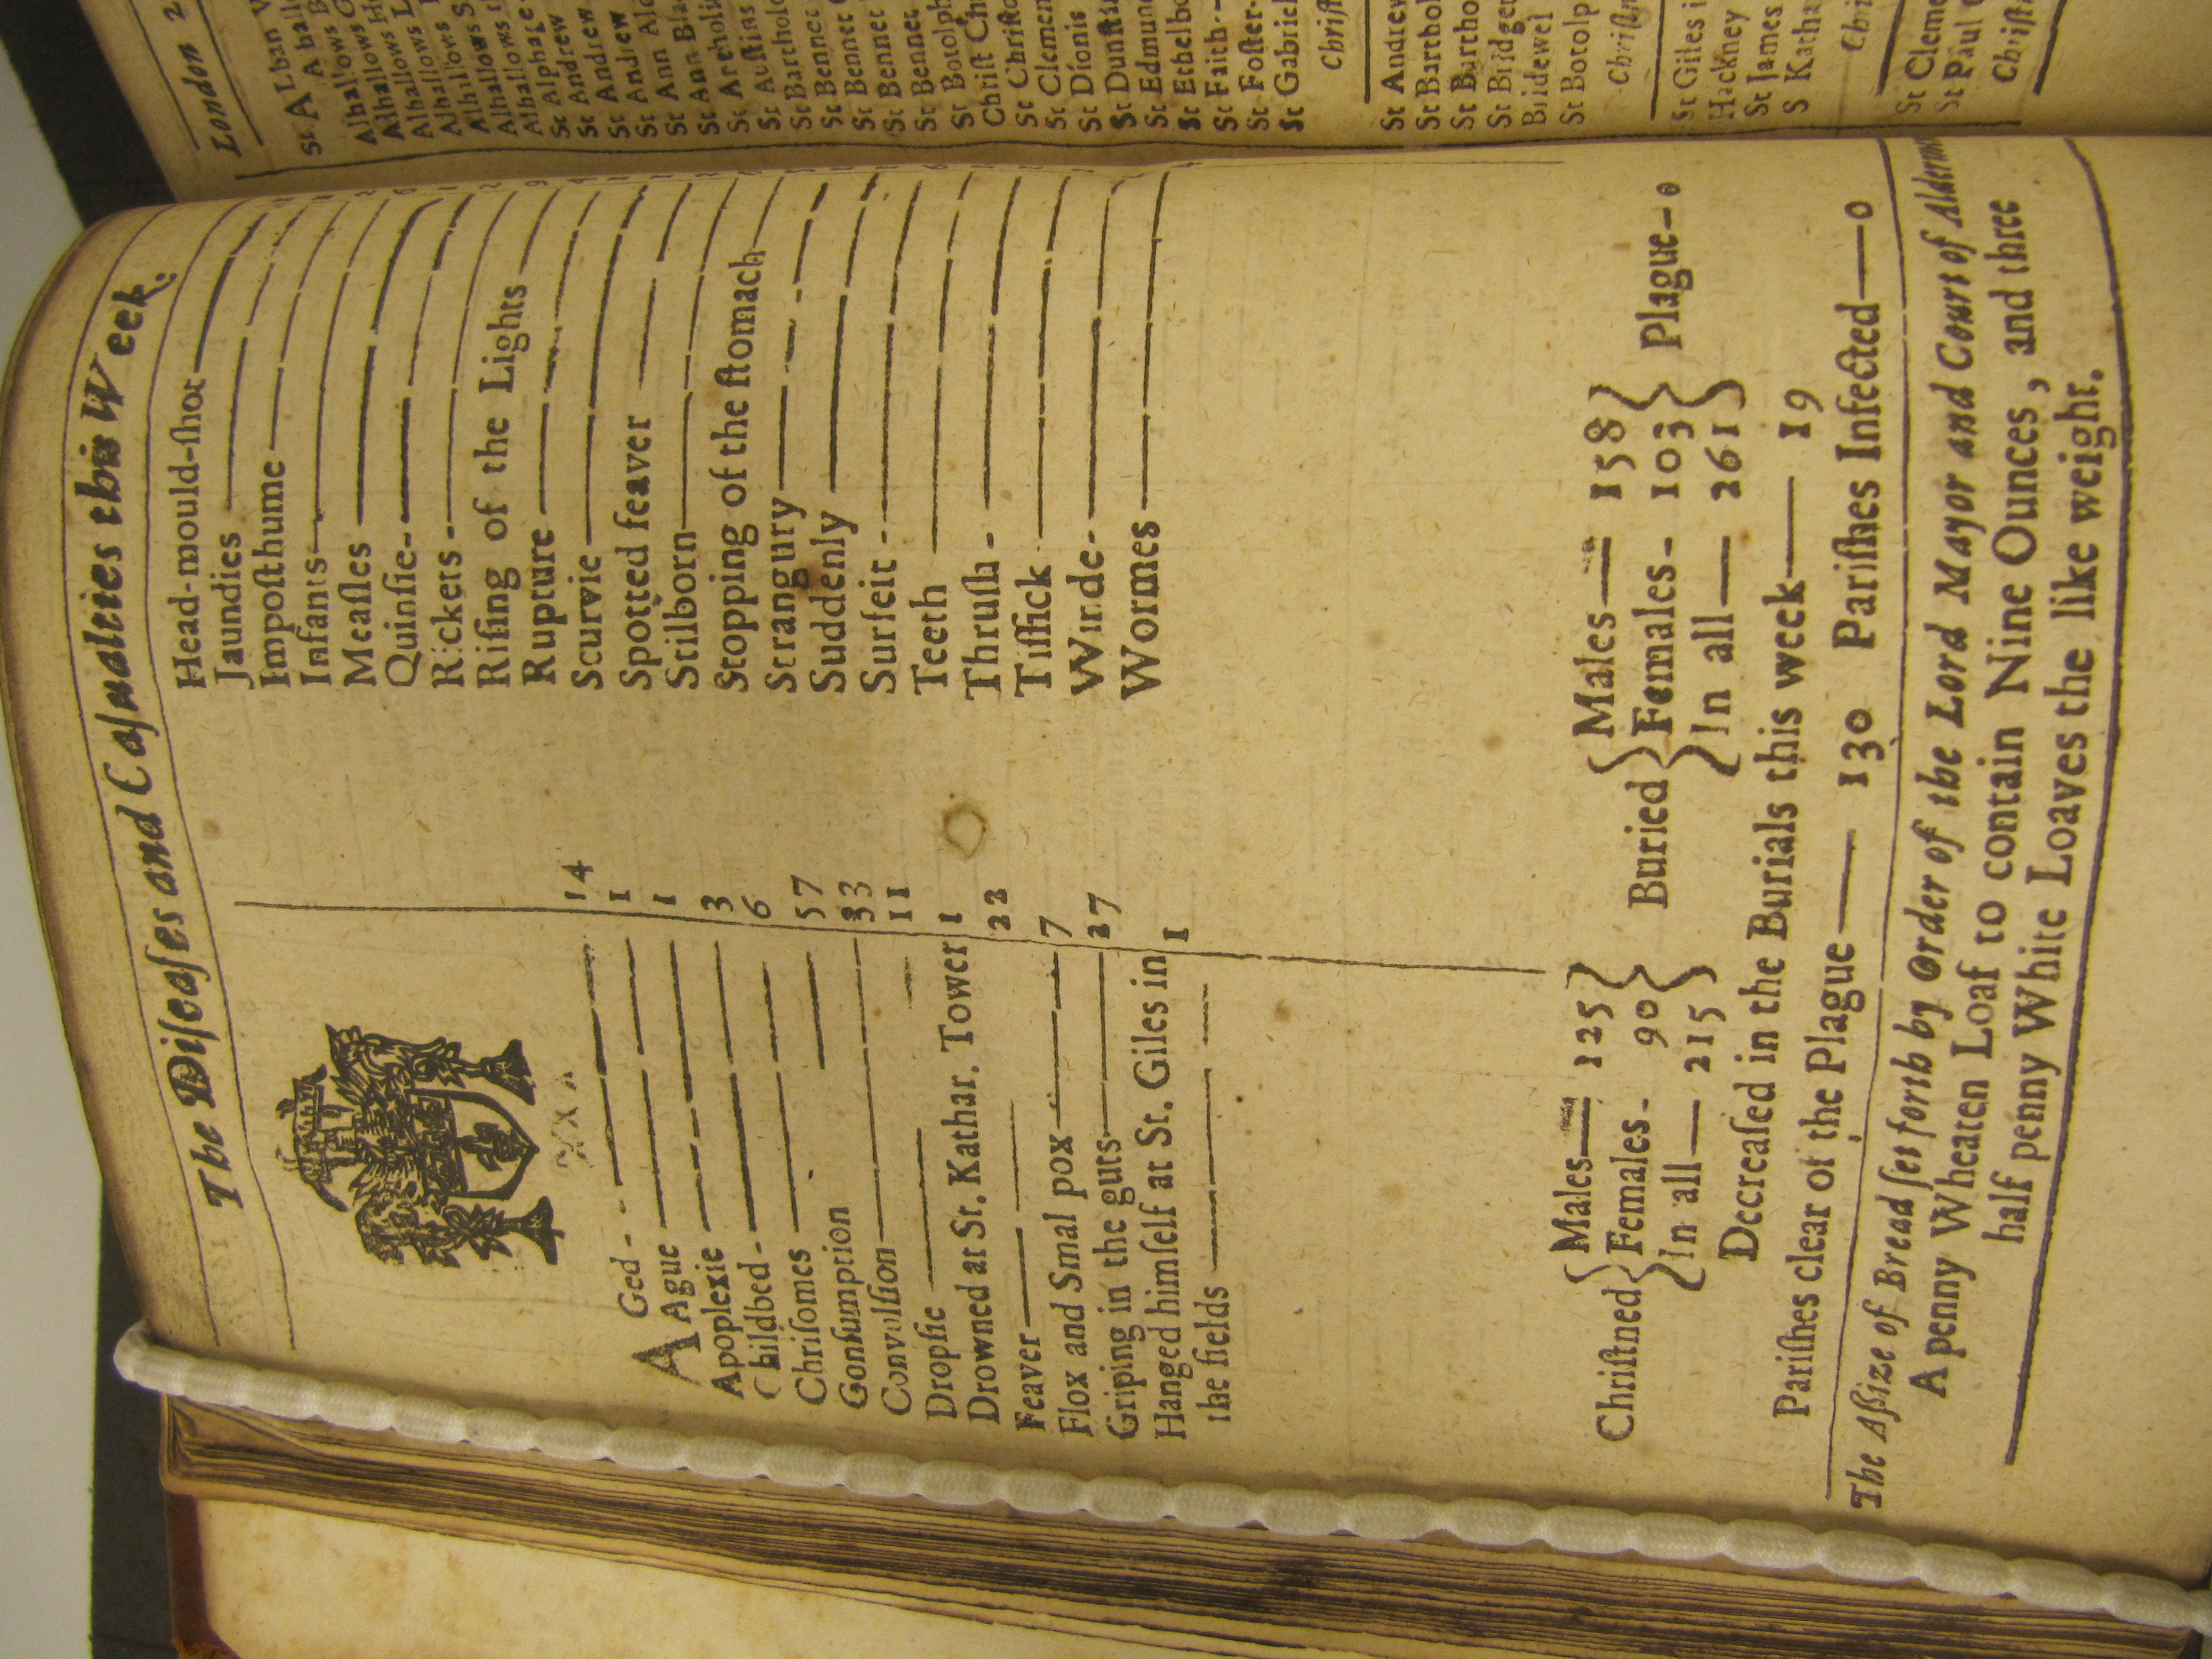 The Diſeaſes and Caſualties this Week.
AGed - 14
Ague 1
Apoplexie 1
Childbed - 3
Chriſomes 6
Gonſumption 57
Convulſion 33
Dropſie 11
Drowned at St. Kathar. Tower 1
Feaver 22
Flox and Smal pox 7
Griping in the guts 27
Hanged himſelf at St. Giles in
the fields 1
Head-mould-ſhot
Jaundies
Impoſthume
Infants
Meaſles
Quinſie
Rickets
Riſing of the Lights
Rupture
Scurvie
Spotted feaver
Stilborn
Stopping of the ſtomach
Strangury
Suddenly
Surfeit
Teeth
Thruſh
Tiſſick
Winde
Wormes
Chriſtned { Males— 125 Females- 90 In all— 215 } Buried { Males— 158 Females- 103 In all— 261 } Plague—0
Decreaſed in the Burials this week— 19
Pariſhes clear of the Plague— 130 Pariſhes Infected—0
The Aſſize of Bread ſet forth by Order of the Lord Mayor and Court of
A penny Wheaten Loaf to contain Nine Ounces, and three
half penny White Loaves the like weight.
London
St ALban
Alhallows
Alhallows
Alhallows
Alhallows
Alhallows
Alhallows
Alhallows
St Alphage
St Andrew
St Andrew
St Andrew
St Ann
St Ann
St
St Auſtins
St
St Bennet
St Bennet
St Bennet
St Bennet
St
Chriſt
St
St
St Dionis
St
St
St
St Faith
St Foſter
St Gabriel
St
St
St
St
Bridewel
St
St Giles
Hackney
St James
S
St
St Paul